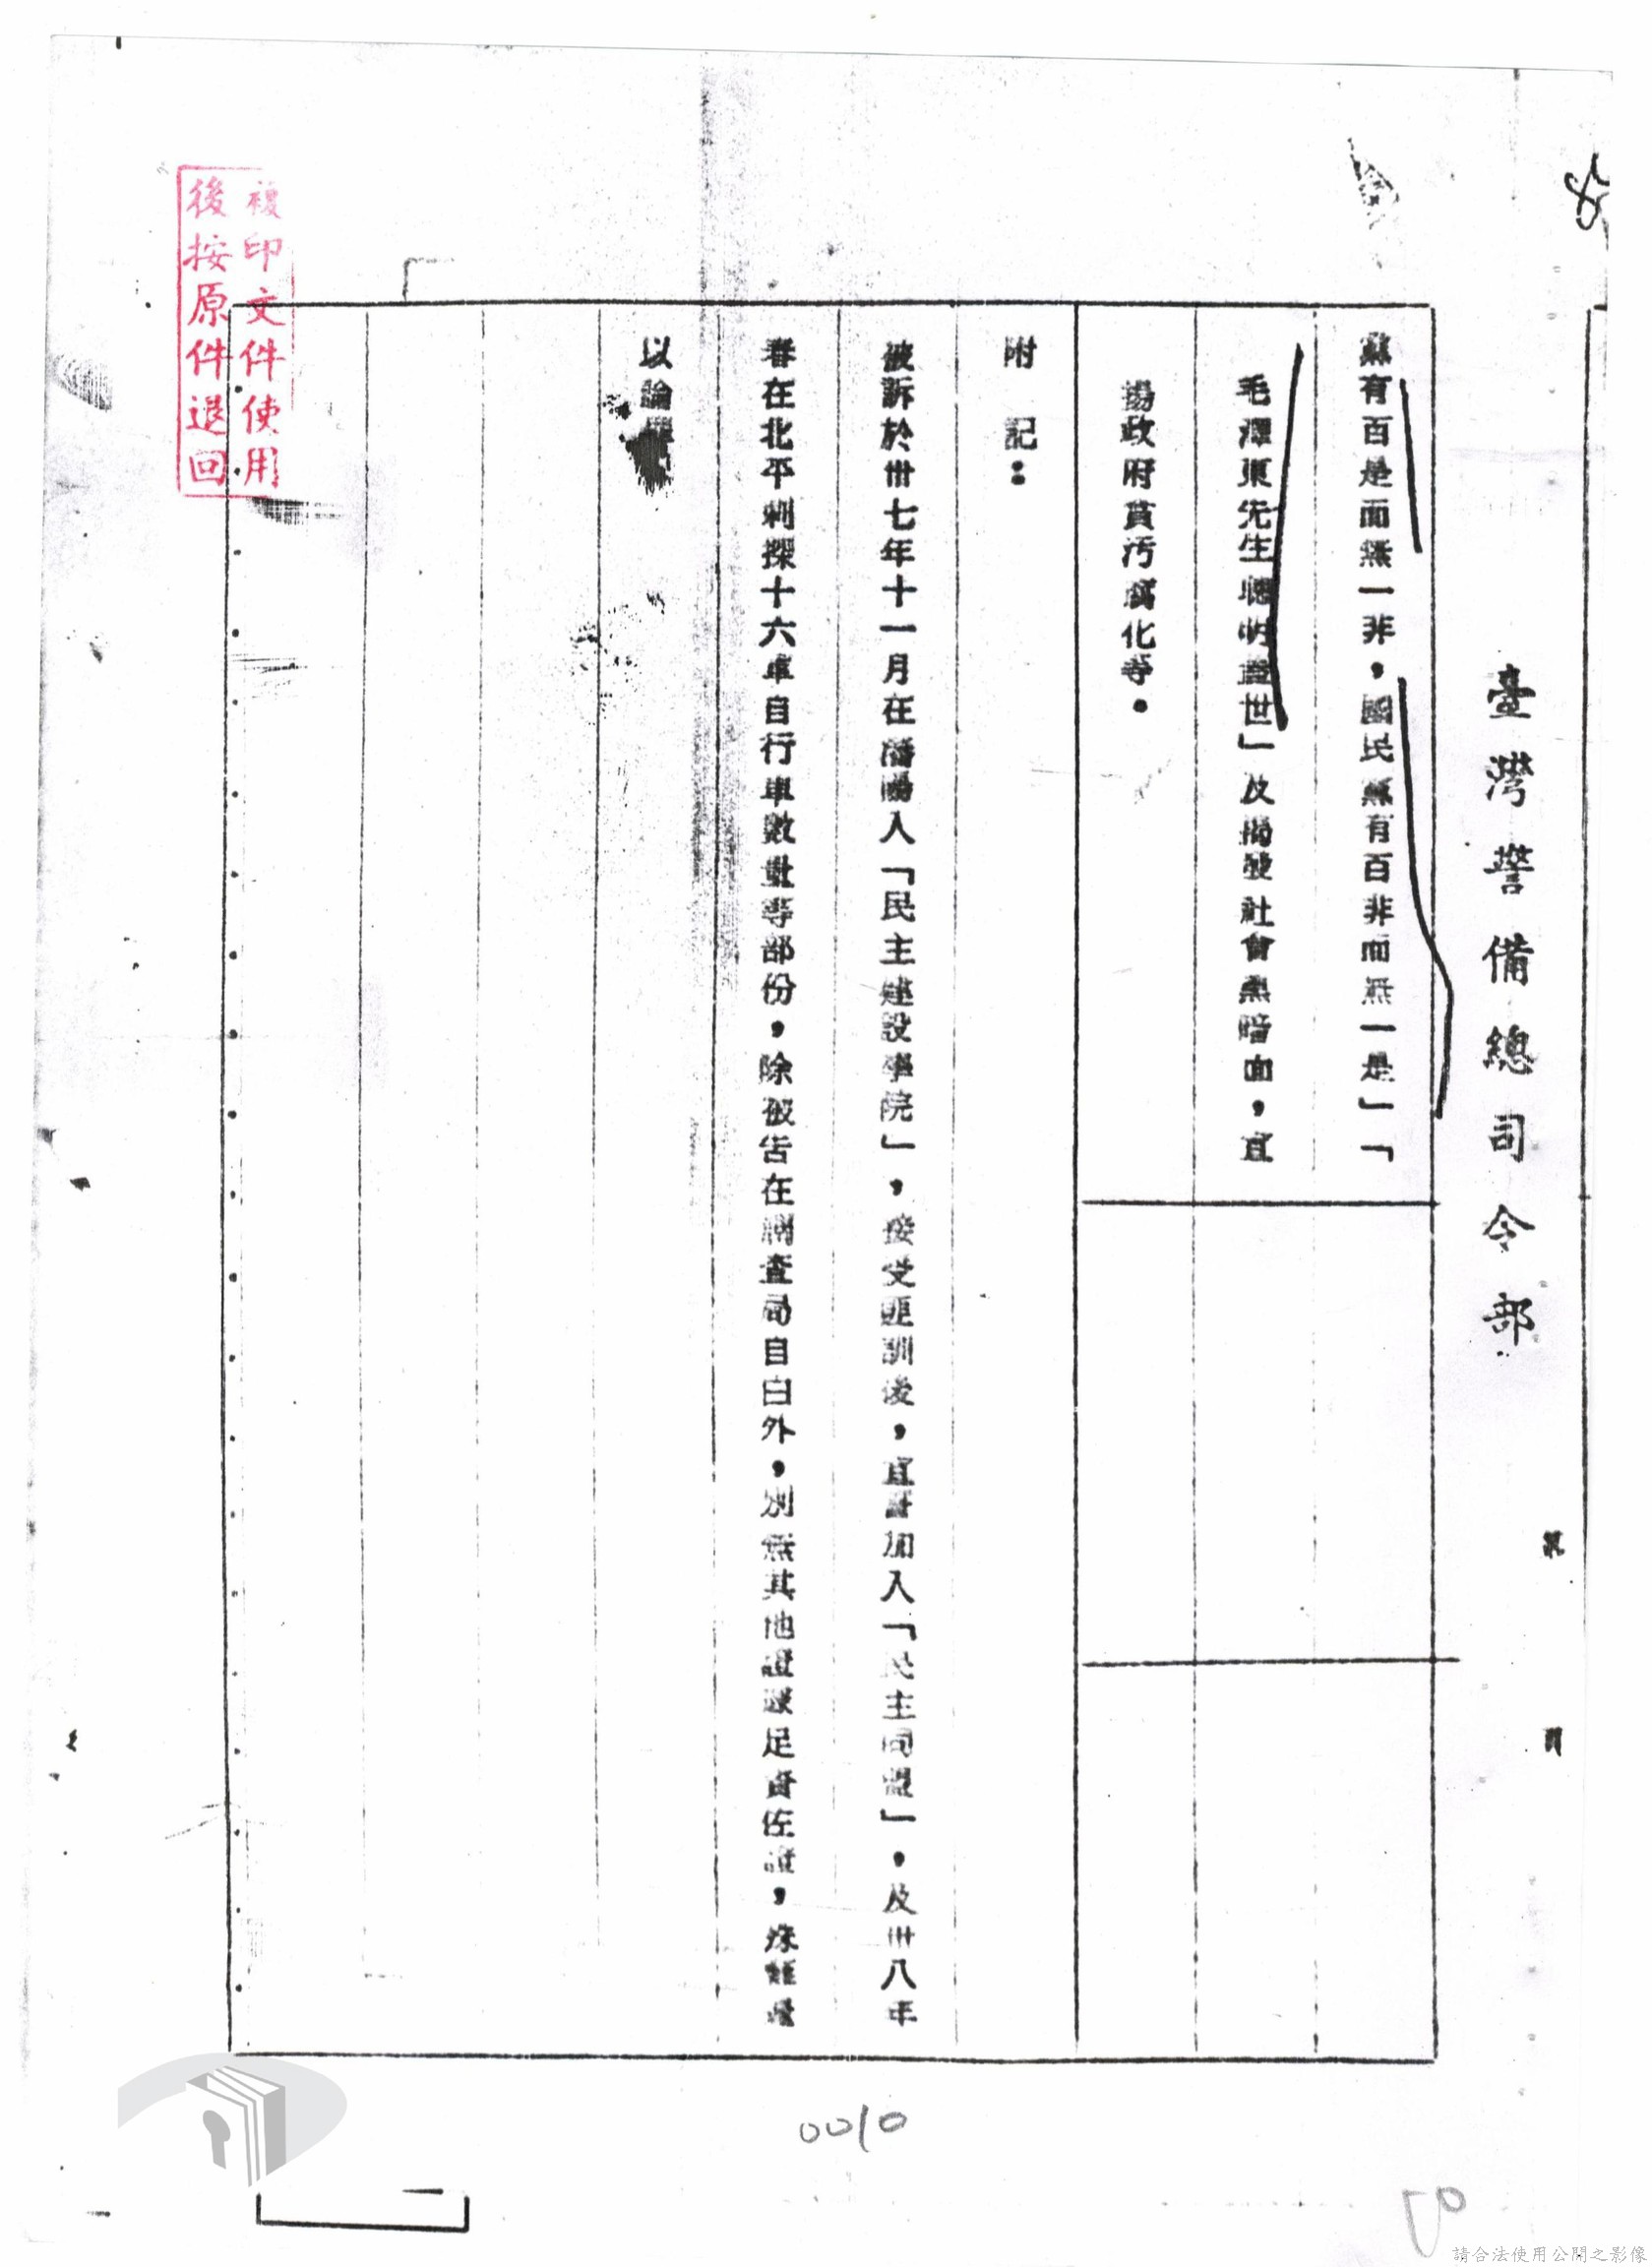 臺灣警備總司令部
黨有百是而無一非，國民黨有百非而無一是」「
毛澤東先生聰明蓋世」及揭發社會黑暗面，宣
揚政府貪污腐化等。
附記：
被訴於卅七年十一月在瀋陽入「民主建設學院」，接受匪訓後，宣誓加入「民主同盟」，及卅八年
春在北平刺探十六軍自行車數量等部份，除被告在調查局自白外，別無其他證據足資佐證，殊難遽
以論罪
複印文件使用
後按原件退回
0010
請合法使用公開之影像